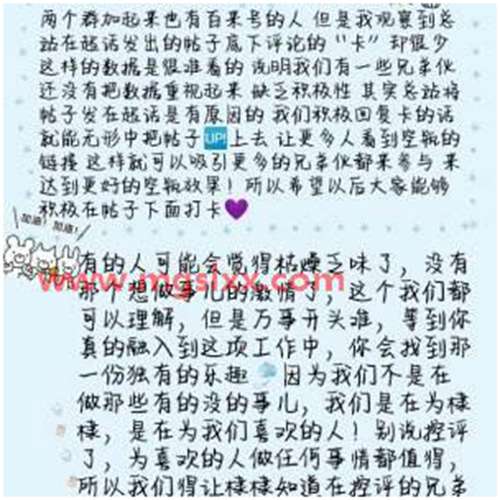 两个群加起来也有百来号的人 但是我观察到总
站在超话发出的帖子底下评论的“卡”却很少
这样的数据是很难看的 说明我们有一些兄弟伙
还没有把数据重视起来 缺乏积极性 其实总站将
帖子发在超话是有原因的 我们积极回复卡的话
就能无形中把帖子UP!上去 让更多人看到空瓶的
链接 这样就可以吸引更多的兄弟伙都来参与 来
达到更好的空瓶效果！所以希望以后大家能够
积极在帖子下面打卡
加油！加油！
有的人可能会觉得枯燥乏味了，没有
www.mgslxx.com
那个想做事儿的激情了，这个我们都
可以理解，但是万事开头难，等到你
真的融入到这项工作中，你会找到那
一份独有的乐趣 因为我们不是在
做那些有的没的事儿，我们是在为棣
棣，是在为我们喜欢的人！别说控评
了，为喜欢的人做任何事情都值得，
所以我们得让棣棣知道在控评的兄弟